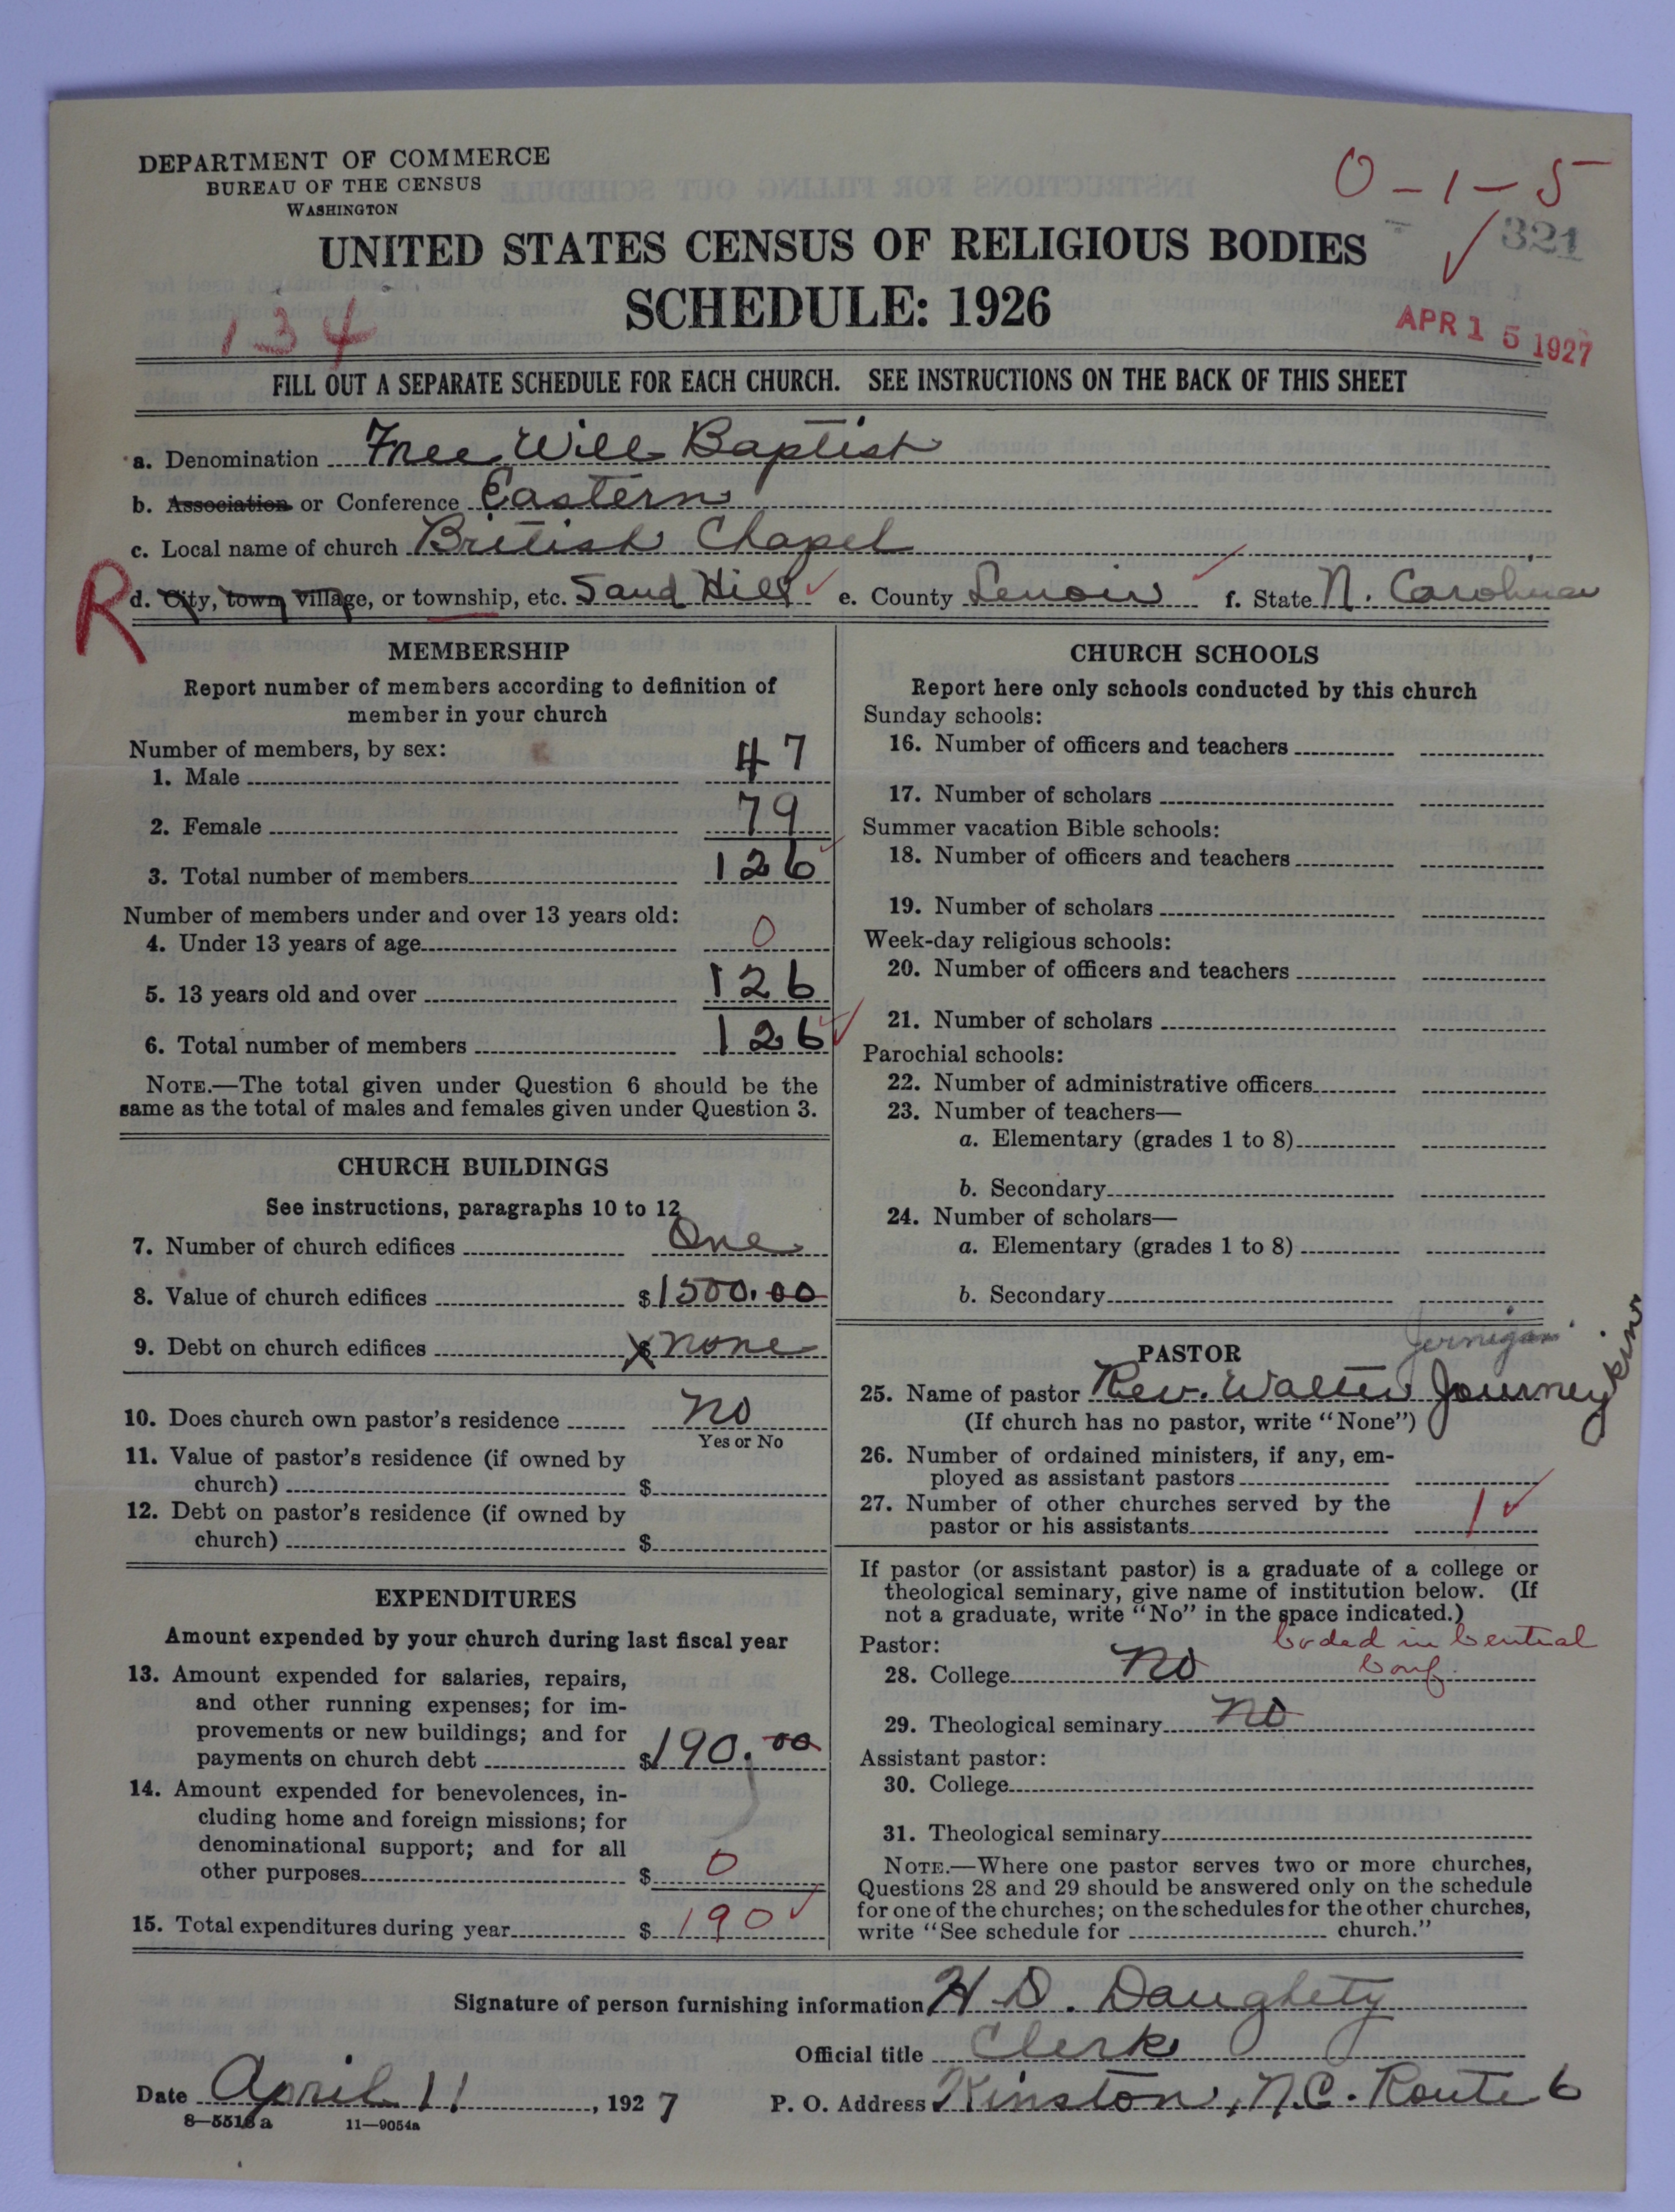 DEPARTMENT OF COMMERCE
BUREAU OF THE CENSUS
WASHINGTON
0-1-5
321
UNITED STATES CENSUS OF RELIGIOUS BODIES
SCHEDULE: 1926
134
APR 15 1927
FILL OUT A SEPARATE SCHEDULE FOR EACH CHURCH. SEE INSTRUCTIONS ON THE BACK OF THIS SHEET
a. Denomination Free Will Baptist
b. Association or Conference Eastern
c. Local name of church British Chapel
R
d. City, town, village, or township, etc. Sand Hill e. County Lenoir f. State N. Carolina
MEMBERSHIP
Report number of members according to definition of
member in your church
Number of members, by sex:
1. Male 47
2. Female 79
3. Total number of members 126
Number of members under and over 13 years old:
4. Under 13 years of age 0
5. 13 years old and over 126
6. Total number of members 126
NOTE.—The total given under Question 6 should be the
same as the total of males and females given under Question 3.
CHURCH BUILDINGS
See instructions, paragraphs 10 to 12
7. Number of church edifices One
8. Value of church edifices $1500.00
9. Debt on church edifices $ none
10. Does church own pastor's residence no
Yes or No
11. Value of pastor's residence (if owned by
church) $
12. Debt on pastor's residence (if owned by
church) $
EXPENDITURES
Amount expended by your church during last fiscal year
13. Amount expended for salaries, repairs,
and other running expenses; for im-
provements or new buildings; and for
payments on church debt $190.00
14. Amount expended for benevolences, in-
cluding home and foreign missions; for
denominational support; and for all
other purposes $ 0
15. Total expenditures during year $ 190
CHURCH SCHOOLS
Report here only schools conducted by this church
Sunday schools:
16. Number of officers and teachers
17. Number of scholars
Summer vacation Bible schools:
18. Number of officers and teachers
19. Number of scholars
Week-day religious schools:
20. Number of officers and teachers
21. Number of scholars
Parochial schools:
22. Number of administrative officers
23. Number of teachers—
a. Elementary (grades 1 to 8)
b. Secondary
24. Number of scholars—
a. Elementary (grades 1 to 8)
b. Secondary
Jernigan
PASTOR
25. Name of pastor Rev. Walter Journeykins
(If church has no pastor, write "None")
26. Number of ordained ministers, if any, em-
ployed as assistant pastors
27. Number of other churches served by the
pastor or his assistants 1
If pastor (or assistant pastor) is a graduate of a college or
theological seminary, give name of institution below. (If
not a graduate, write "No" in the space indicated.)
Pastor: Coded in Central
28. College No Conf.
29. Theological seminary No
Assistant pastor:
30. College
31. Theological seminary
NOTE.—Where one pastor serves two or more churches,
Questions 28 and 29 should be answered only on the schedule
for one of the churches; on the schedules for the other churches,
write "See schedule for church."
Signature of person furnishing information H D. Daughety
Official title Clerk
Date April 11, 1927 P. O. Address Kinston, N.C. Route 6
8—5518a 11—9054a